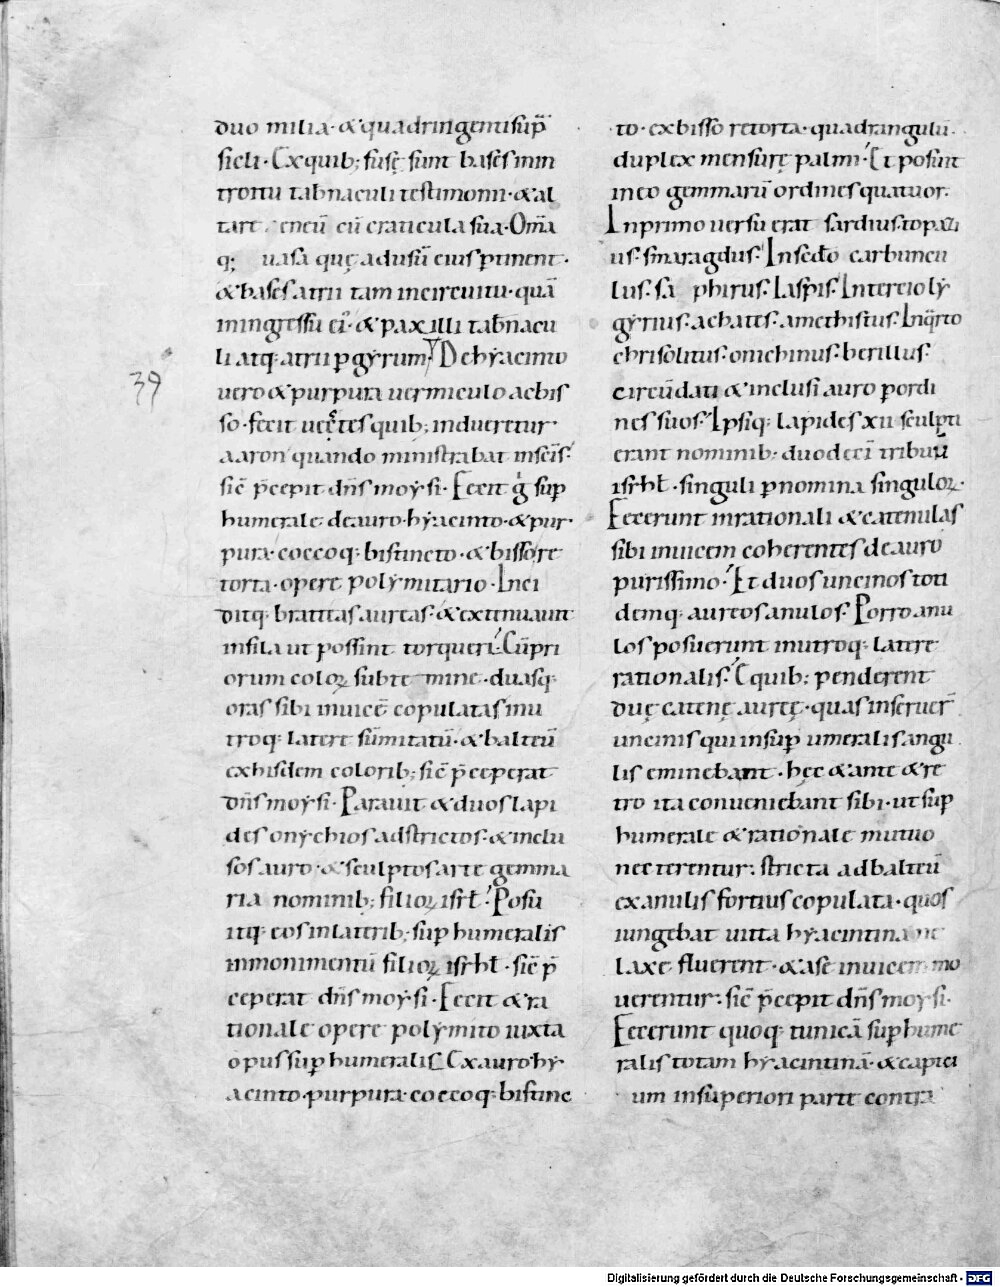 duo milia· & quadringenti sup̄
sicli· Ex quib; fusę sunt bases in in
troitu tab̄naculi testimonii· & al
tare eneū cū craticula sua· Om̄ia
q; uasa quę ad usū eius ꝑtinent·
& bases atrii tam in circuitu· quā
in ingressu ei᾿· & paxilli tab̄nacu
li atq· atrii ꝑ gẏrum· De hẏacinto
39
uero & purpura uermiculo ac bis
so· fecit uestes quib; indueretur
aaron quando ministrabat in sc̄is·
sic̄ p̄cepit dn̄s moẏsi· Fecit g̊ sup
humerale de auro· hẏacinto· & pur·
pura· coccoq· bis tincto· & bisso re
torta· opere polẏmitario· Inci
ditq· bratteas aureas· & extenuauit
in fila ut possint torqueri· Cū pri
orum coloꝝ subtemine· duasq·
oras sibi inuicē copulatas in u
troq· latere sūmitatū· & balteū
ex hisdem colorib; sic̄ p̄ceperat
dn̄s moẏsi· Parauit & duos lapi
des onẏchios adstrictos· & inclu
sos auro· & sculptos arte gemma
ria nominib; filioꝝ isrł· Posu
itq· eos in laterib; sup humeralis
in monimentū filioꝝ isrhł· sic̄ p̄
ceperat dn̄s moẏsi· Fecit & ra
tionale opere polẏmito iuxta
opus sup humeralis Ex auro· hẏ
acinto· purpura· coccoq· bis tinc
to· ex bisso retorta· quadrangulū·
duplex mensurę palmi· Et posuit
in eo gemmarū ordines quatuor·
In primo uersu erat sardius· topazi
us· smaragdus· In sec̄do carbuncu
lus· saphirus· Iaspis· In tercio lẏ
gẏrius· achates· amethistus· In q̄rto
chrisolitus· onichinus· berillus·
circūdati & inclusi auro ꝑ ordi
nes suos· Ipsiq· lapides xii sculpti
erant nominib; duodecī tribuū
isrhł· singuli ꝑ nomina singuloꝝ·
Fecerunt in rationali & catenulas
sibi inuicem coherentes de auro
purissimo· Et duos uncinos toti
demq· aureos anulos· Porro anu
los posuerunt in utroq· latere
rationalis· E quib; penderent
duę catenę aureę· quas inseruer̄
uncinis qui in sup umeralis angu
lis eminebant· hęc & ante & re
tro ita conueniebant sibi· ut sup
humerale & rationale mutuo
necterentur· stricta ad balteū
ex anulis fortius copulata· quos
iungebat uitta hẏacintina ne
laxe fluerent· & a se inuicem mo
uerentur· sic̄ p̄cepit dn̄s moẏsi·
Fecerunt quoq· tunicā sup hume
ralis totam hẏacintinā· & capici
um in superiori parte contra
Digitalisierung gefördert durch die Deutsche Forschungsgemeinschaft - DFG